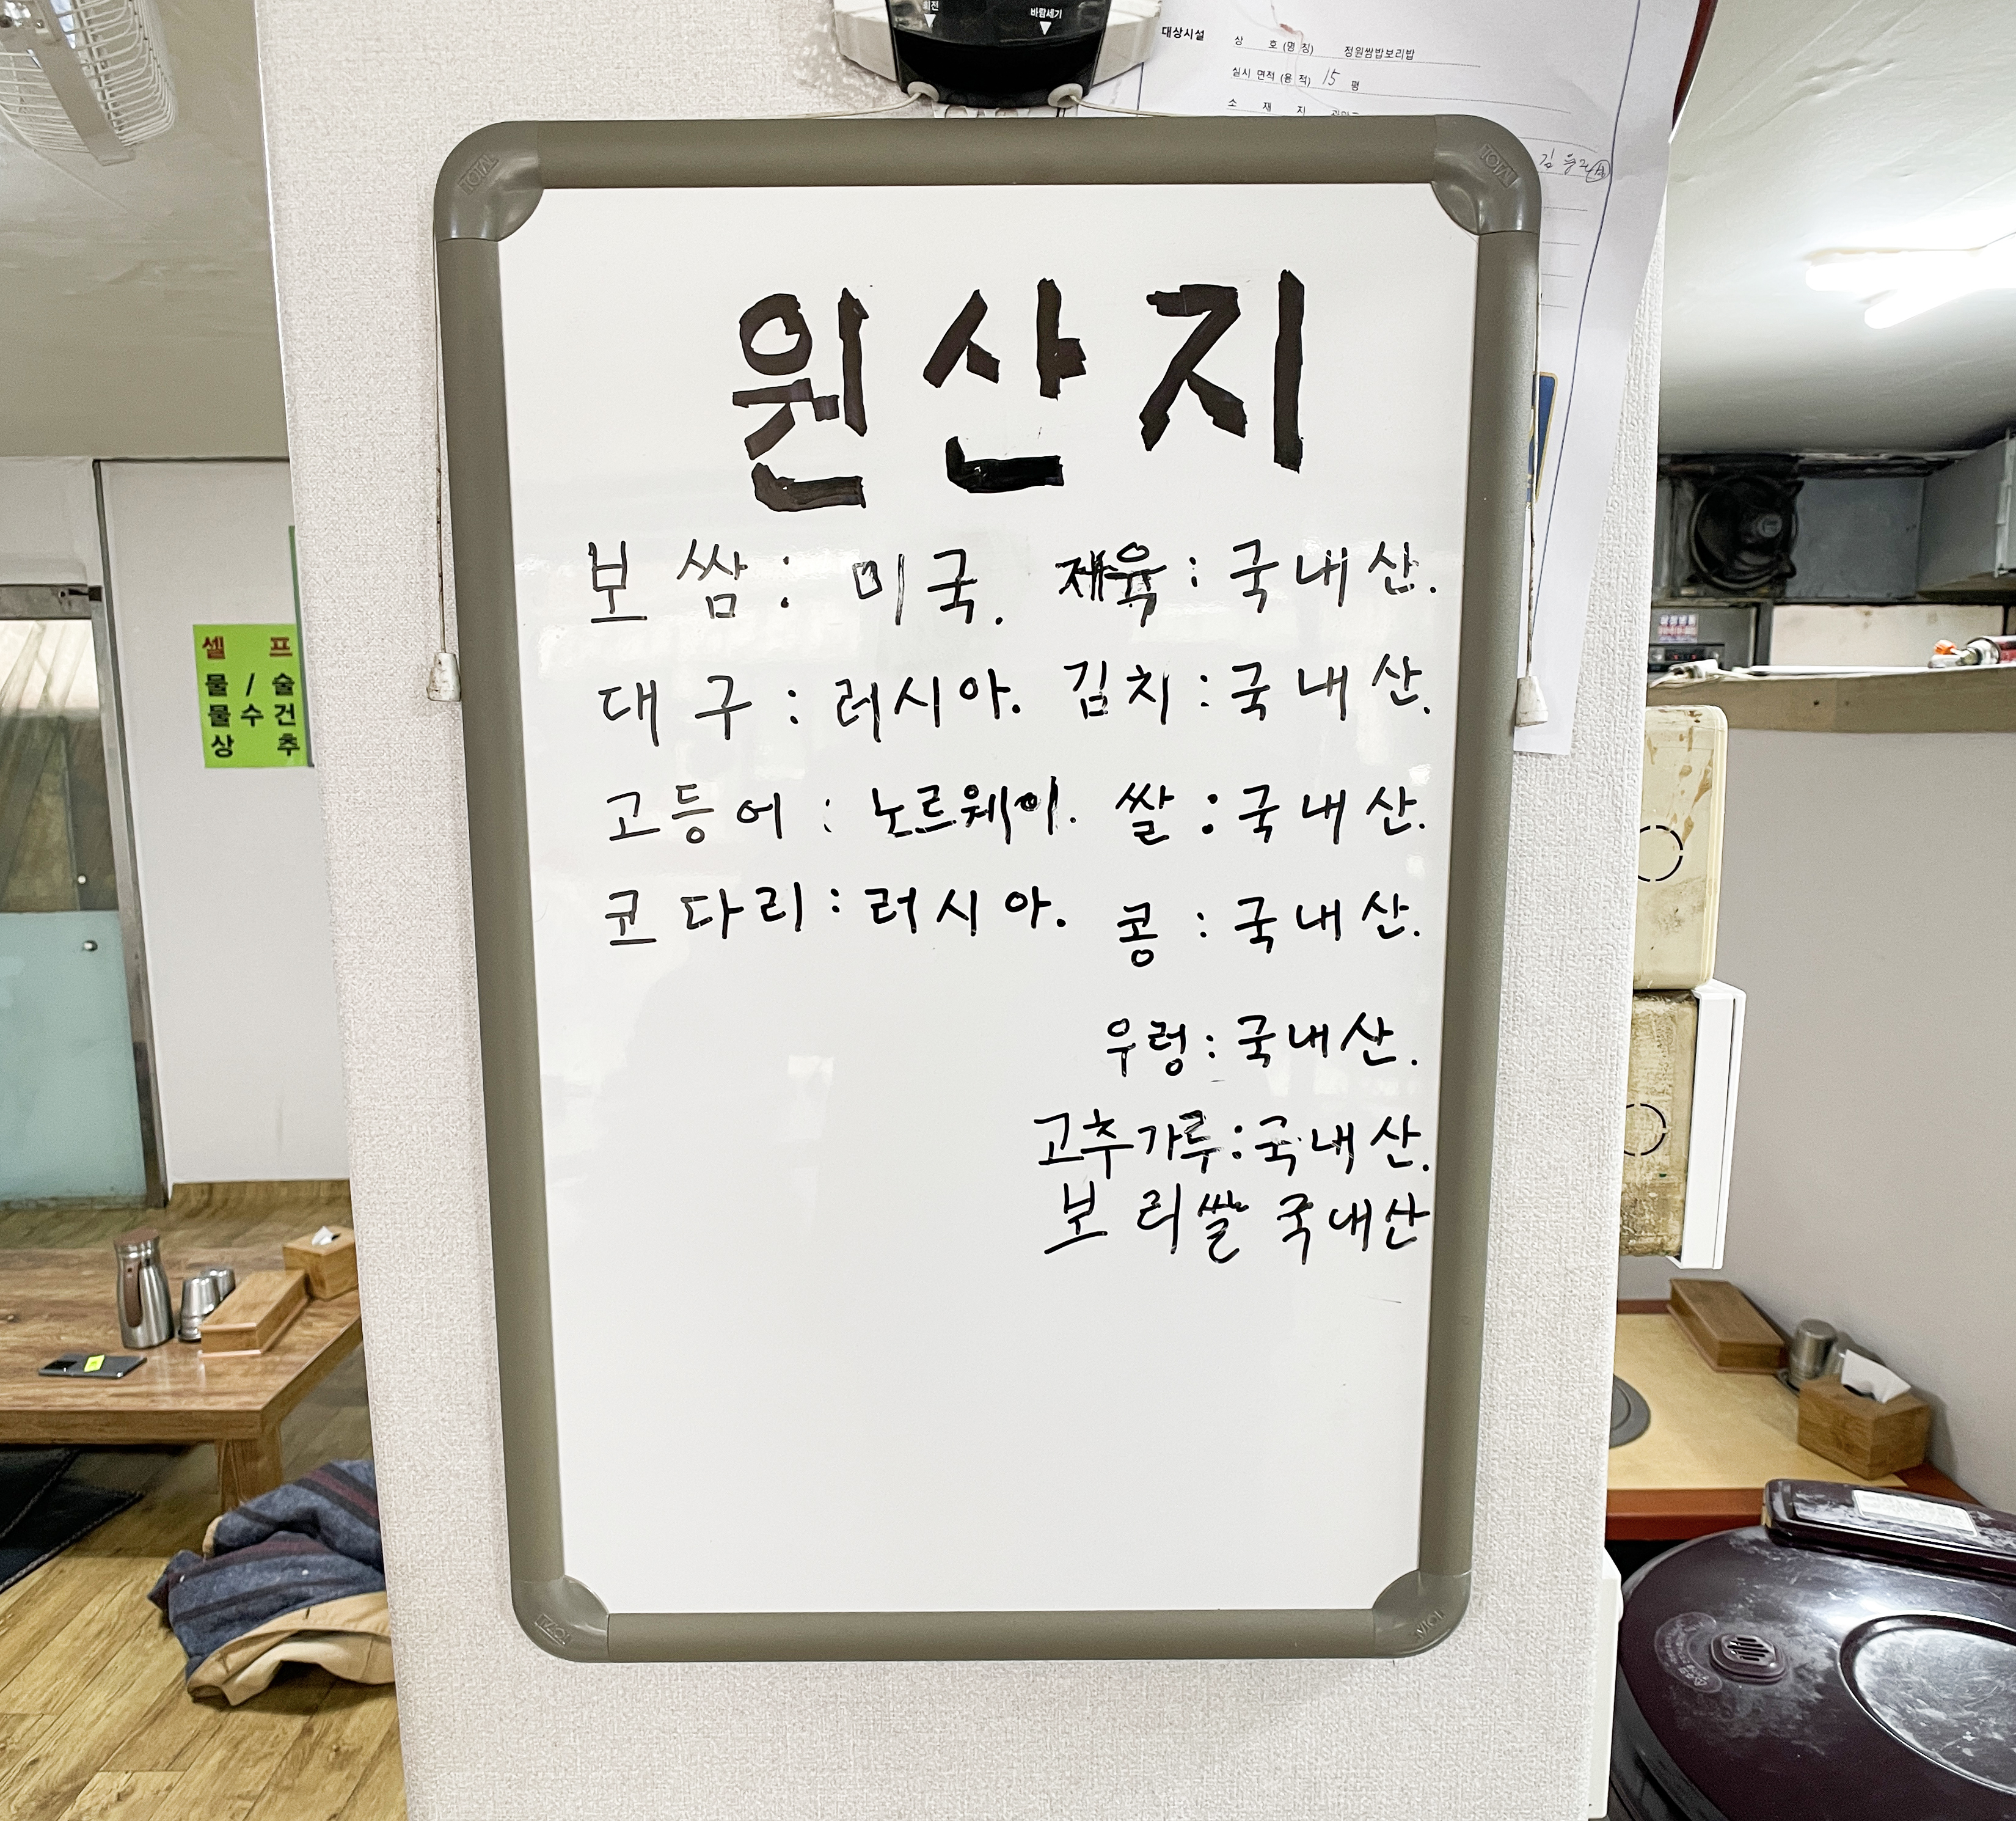 회전 바람세기
대상시설 상 호 (명 칭) 정원쌈밥보리밥
실시 면적 (용 적) 15 평
소 재 지
TOTAL
TOTAL
원산지
보쌈: 미국. 제육: 국내산.
대구: 러시아. 김치: 국내산.
고등어: 노르웨이. 쌀: 국내산.
코다리: 러시아. 콩: 국내산.
우렁: 국내산.
고추가루: 국내산.
보리쌀 국내산
셀 프
물 / 술
물 수 건
상 추
TOTAL
TOTAL